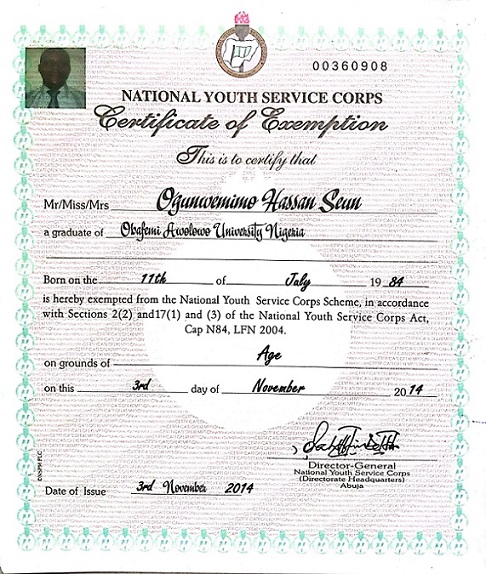 00360908
NATIONAL YOUTH SERVICE CORPS
Certificate of Exemption
This is to certify that
Mr/Miss/Mrs Ogunwemimo Hassan Seun
a graduate of Obafemi Awolowo University Nigeria
Born on the 11th of July 1984
is hereby exempted from the National Youth Service Corps Scheme, in accordance
with Sections 2(2) and17(1) and (3) of the National Youth Service Corps Act,
Cap N84, LFN 2004.
on grounds of Age
on this 3rd day of November 2014
Director-General
National Youth Service Corps
(Directorate Headquarters)
Abuja
Date of Issue 3rd November 2014